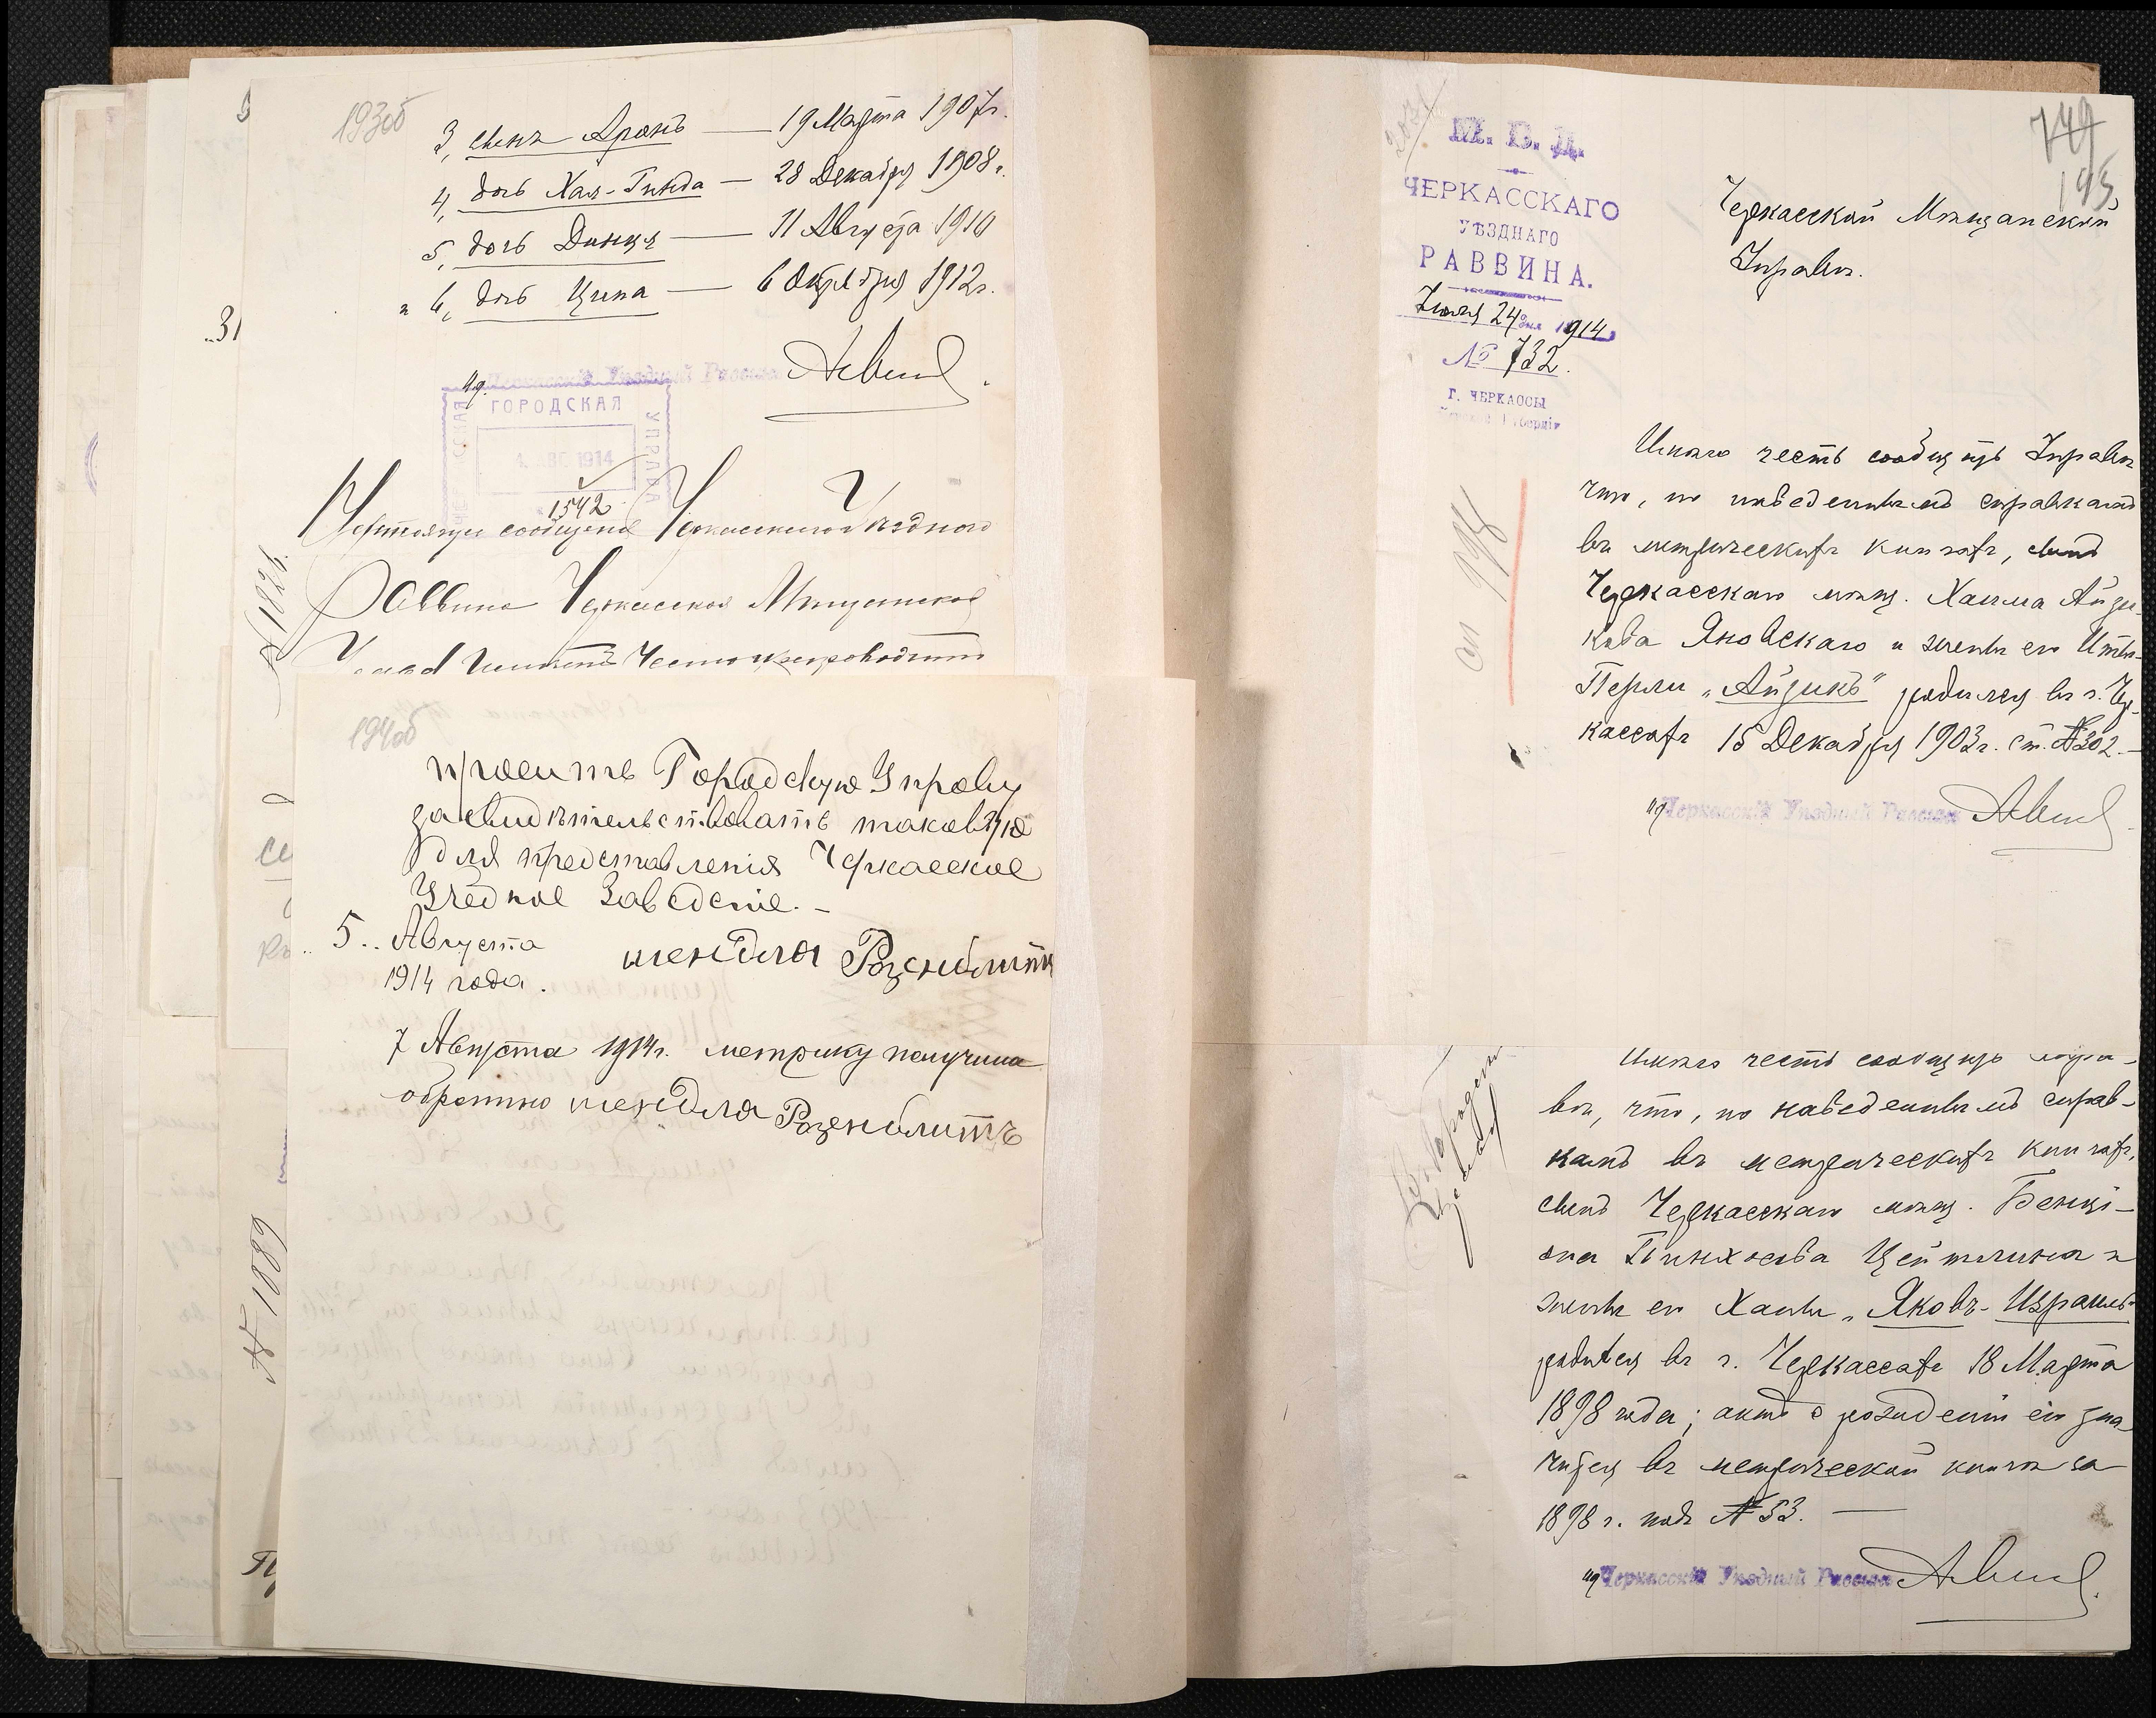 193об
3, сынъ Аронъ — 19 Марта 1907г.
4, дочь Хая-Гинда — 28 Декабря 1908г.
5, дочь Динця — 11 Августа 1910
и 6, дочь Ципа — 6 Октября 1912г.
ид. Черкасскій Уѣздный Раввинъ
ГОРОДСКАЯ
УПРАВА
1914
1542
Черкасскаго Уѣзднаго
Раввина Черкасская Мѣщанская
Честь препроводить
194об
просить Городскую Управу
засвидѣтельствовать таковую
для представленія Черкасское
Учебное Заведеніе. –
5. Августа
1914 года.
шендля Розенблитъ
7 Августа 1914г. метрику получила
обратно шендля Розенблитъ
№ 1089
749
195
М. В. Д.
ЧЕРКАССКАГО
УѢЗДНАГО
РАВВИНА.
Іюля 24 дня 1914
№ 732.
Г. ЧЕРКАССЫ
Черкасской Мѣщанской
Управѣ.
Имѣю честь сообщить Управѣ
что, по наведеннымъ справкамъ
въ метрическихъ книгахъ, сынъ
Черкасскаго мѣщ. Хаима Айзи-
кова Яновскаго и жены его Итты-
Перли „Айзикъ" родился въ г. Чер-
кассахъ 15 Декабря 1903г. ст. №302.—
ид Черкасскій Уѣздный Раввинъ
Имѣю честь сообщить Упра-
вѣ, что, по наведеннымъ справ-
камъ въ метрическихъ книгахъ,
сынъ Черкасскаго мѣщ. Бенці-
она Пинхосова Цейтлина и
жены его Ханы „Яковъ-Израиль"
родился въ г. Черкассахъ 18 Марта
1898 года; актъ о рожденіи его зна
чится въ метрической книгѣ за
1898 г. подъ №53. —
ид Черкасскій Уѣздный Раввинъ